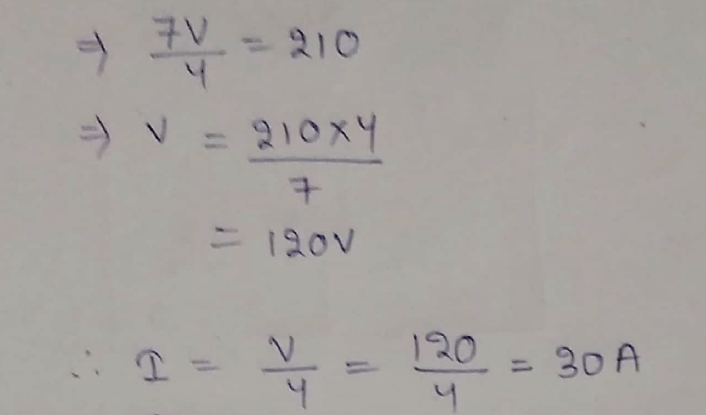 ⇒ 7V/4 = 210
⇒ V = 210×4/7
= 120V
∴ I = V/4 = 120/4 = 30A